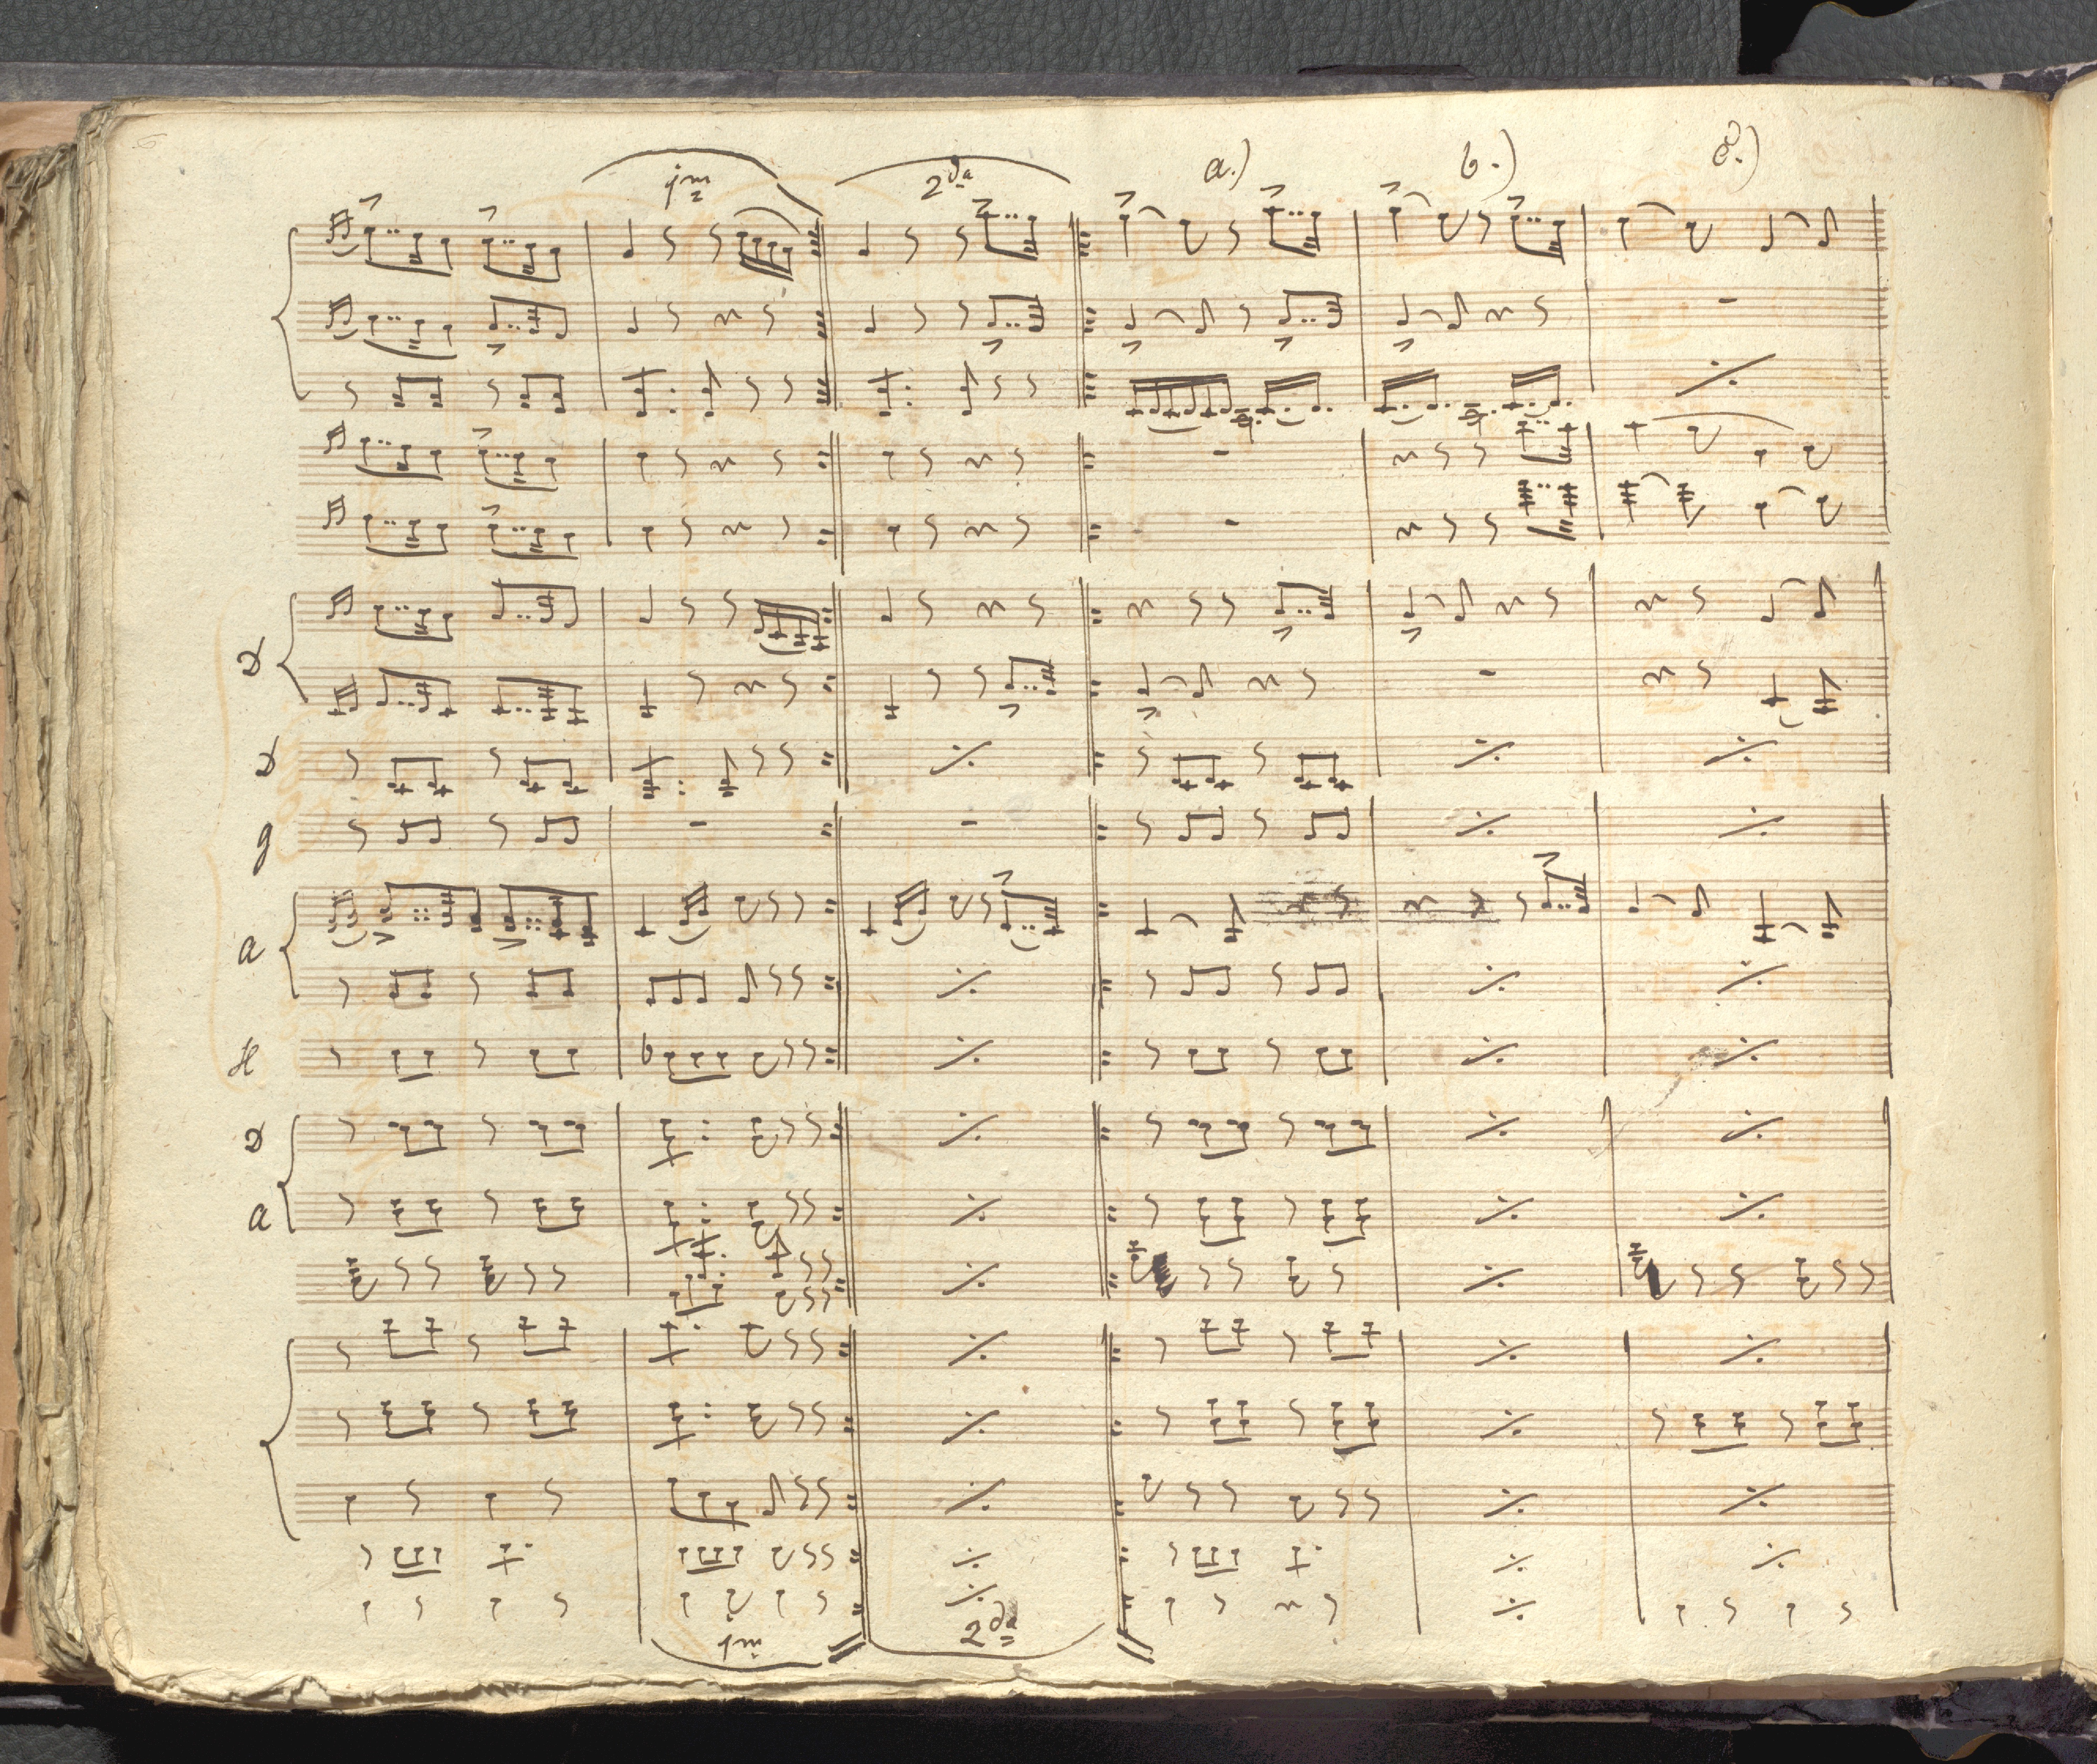 1m 2da a.) b.)
D
D
g
a
H
D
a
1m 2da